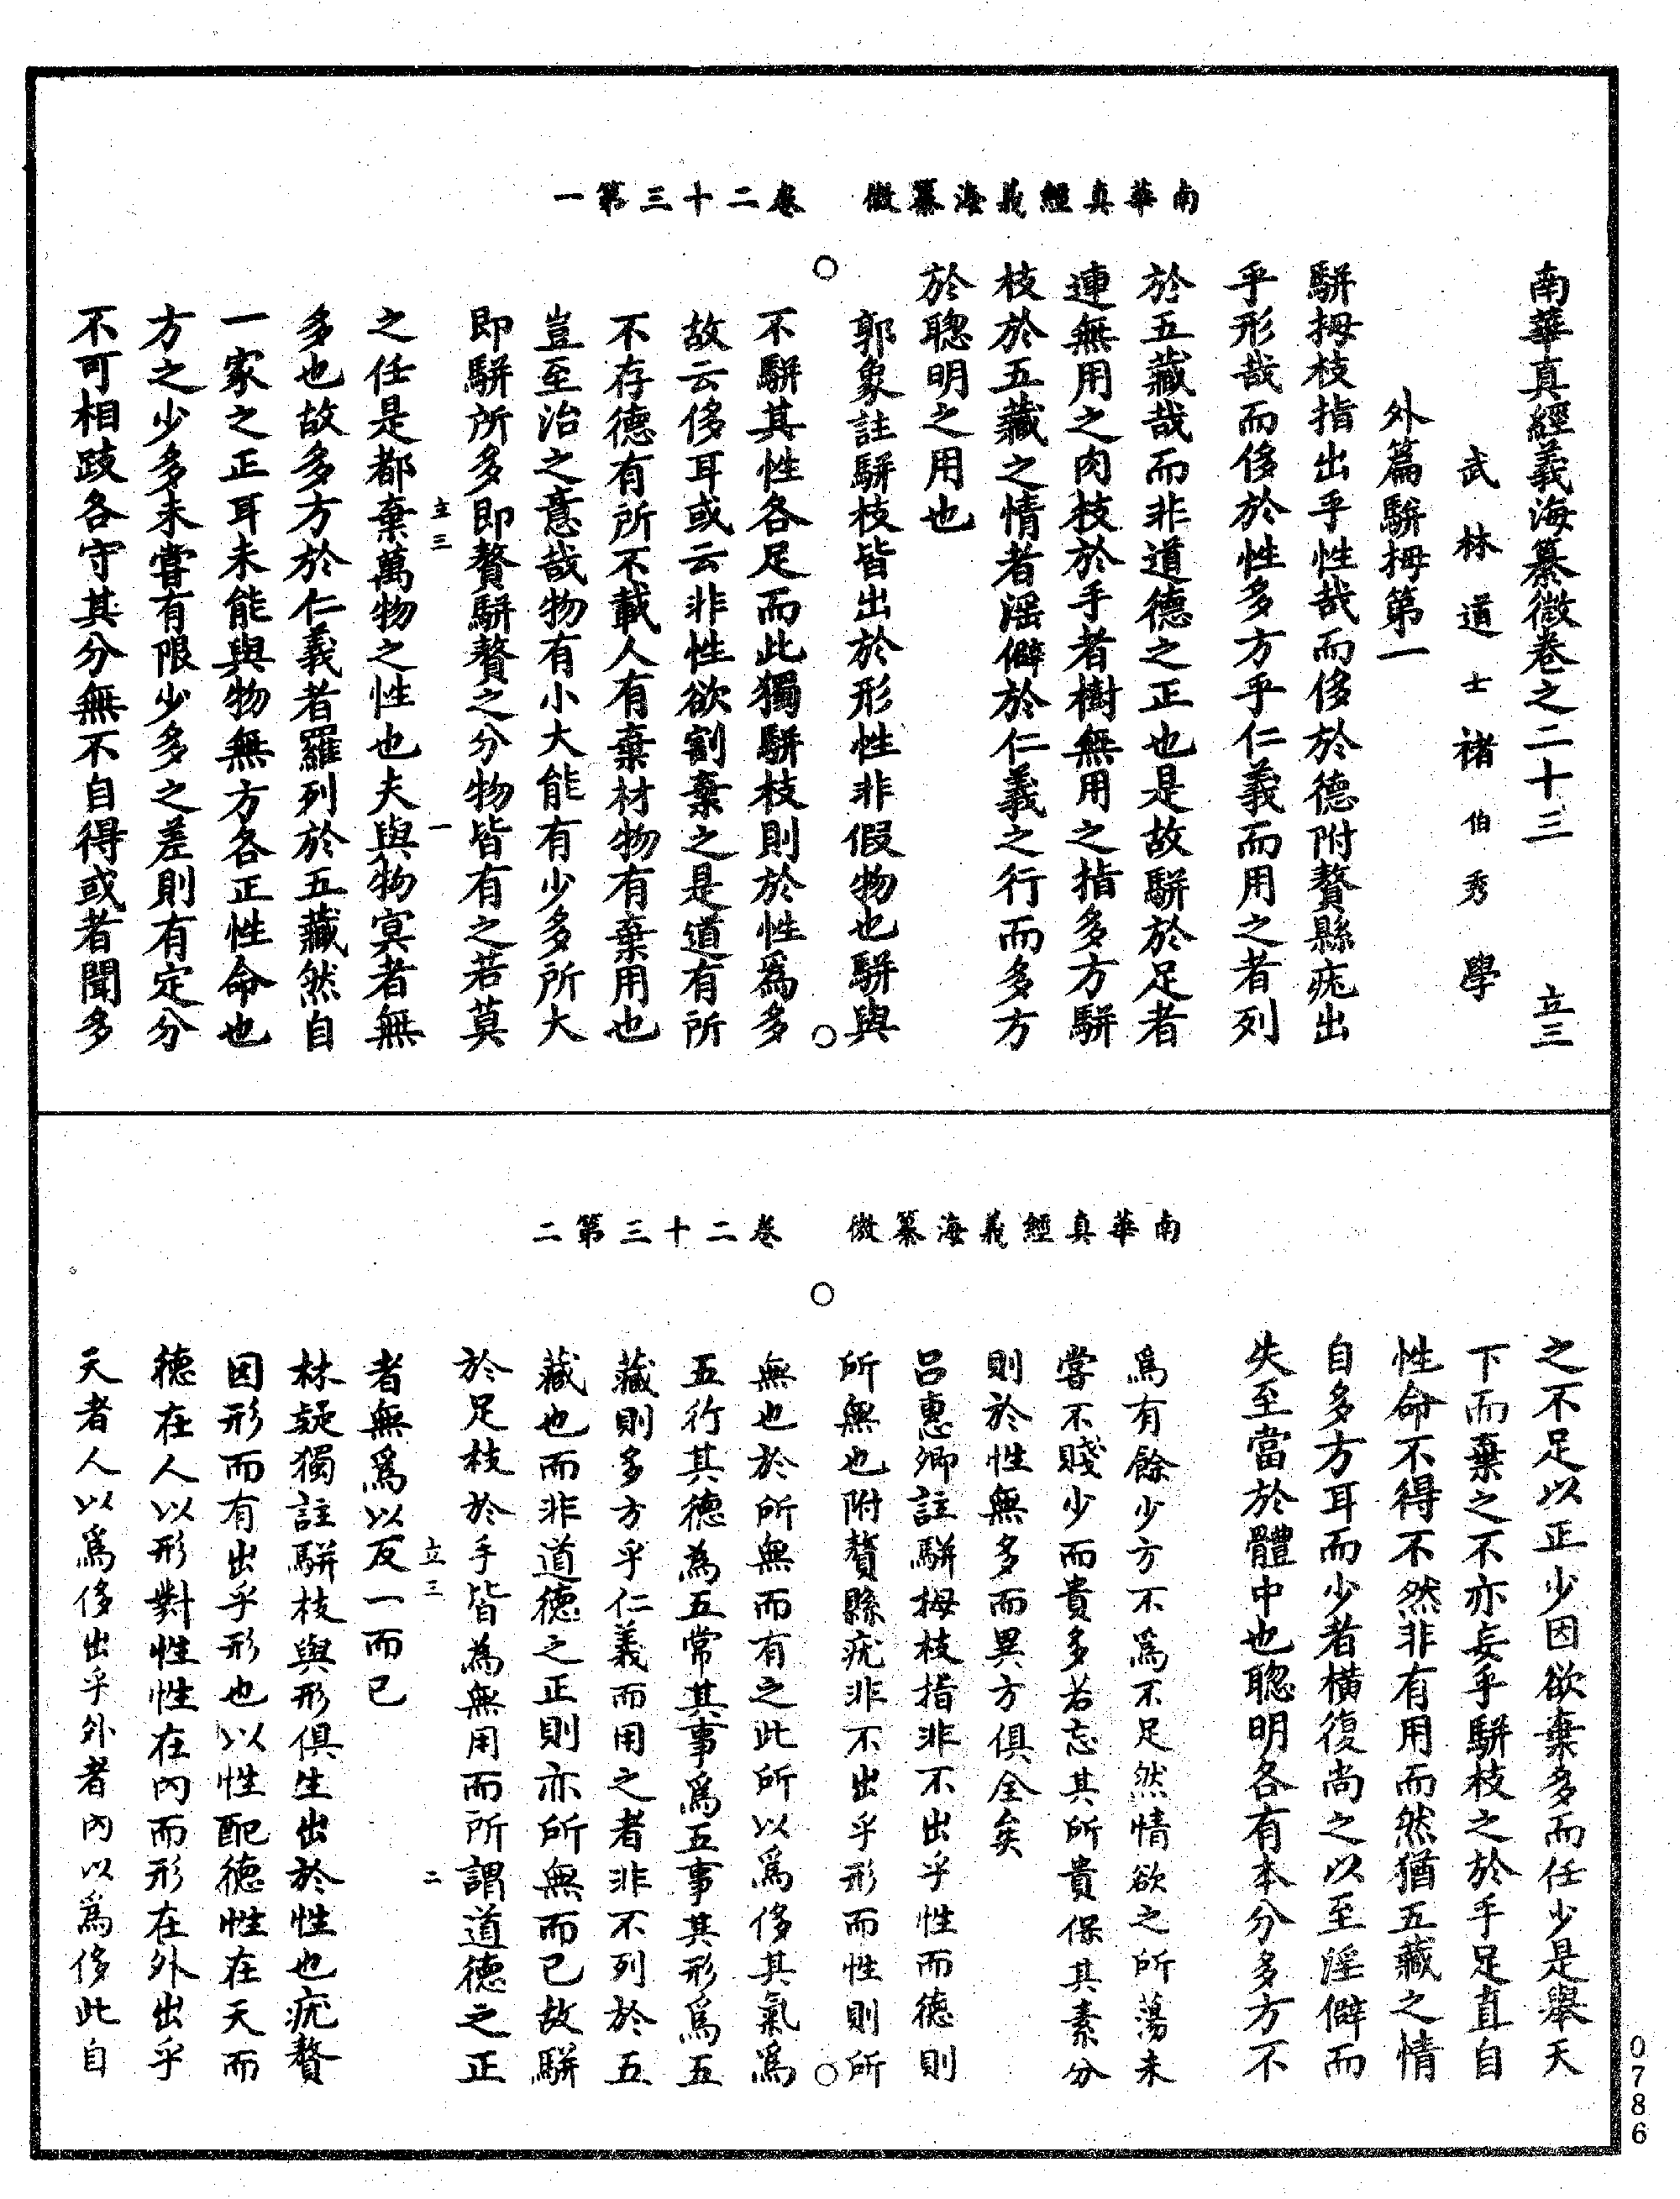 南華真經義海纂微　卷二十三第一
南華真經義海纂微卷之二十三　立三
武林道士褚伯秀學
外篇駢拇第一
駢拇枝指出乎性哉而侈於德附贅縣疣出
乎形哉而侈於性多方乎仁義而用之者列
於五藏哉而非道德之正也是故駢於足者
連無用之肉枝於手者樹無用之指多方駢
枝於五藏之情者淫僻於仁義之行而多方
於聰明之用也
郭象註駢枝皆出於形性非假物也駢與
不駢其性各足而此獨駢枝則於性爲多
故云侈耳或云非性欲割棄之是道有所
不存德有所不載人有棄材物有棄用也
豈至治之意哉物有小大能有少多所大
即駢所多即贅駢贅之分物皆有之若莫
立三　一
之任是都棄萬物之性也夫與物冥者無
多也故多方於仁義者羅列於五藏然自
一家之正耳未能與物無方各正性命也
方之少多未嘗有限少多之差則有定分
不可相跂各守其分無不自得或者聞多
南華真經義海纂微　卷二十三第二
之不足以正少因欲棄多而任少是舉天
下而棄之不亦妄乎駢枝之於手足直自
性命不得不然非有用而然猶五藏之情
自多方耳而少者橫復尚之以至淫僻而
失至當於體中也聰明各有本分多方不
爲有餘少方不爲不足然情欲之所蕩未
嘗不賤少而貴多若忘其所貴保其素分
則於性無多而異方俱全矣
呂惠卿註駢拇枝指非不出乎性而德則
所無也附贅縣疣非不出乎形而性則所
無也於所無而有之此所以爲侈其氣爲
五行其德為五常其事爲五事其形爲五
藏則多方乎仁義而用之者非不列於五
藏也而非道德之正則亦所無而已故駢
於足枝於手皆為無用而所謂道德之正
立三　二
者無爲以反一而已
林疑獨註駢枝與形俱生出於性也疣贅
因形而有出乎形也以性配德性在天而
德在人以形對性性在內而形在外出乎
天者人以爲侈出乎外者內以爲侈此自
0786